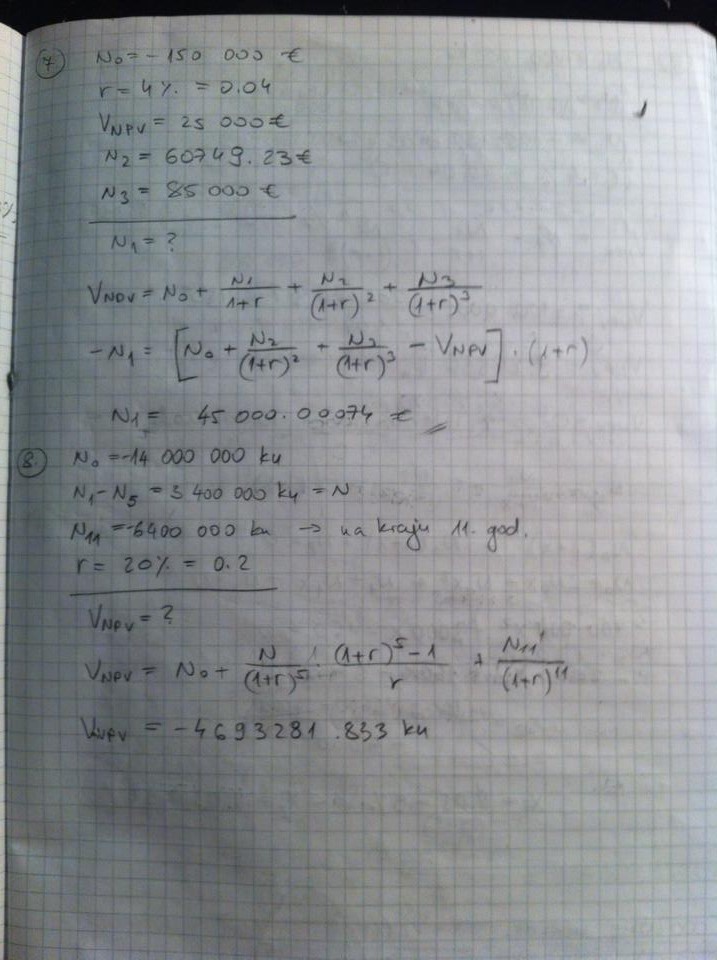 7 N₀ = -150 000 €
r = 4% = 0.04
V_NPV = 25 000 €
N₂ = 60749.23 €
N₃ = 85 000 €
N₁ = ?
V_NPV = N₀ + N₁/(1+r) + N₂/(1+r)² + N₃/(1+r)³
-N₁ = [N₀ + N₂/(1+r)² + N₃/(1+r)³ - V_NPV] · (1+r)
N₁ = 45 000.00074 €
8. N₀ = -14 000 000 ku
N₁-N₅ = 3 400 000 ku = N
N₁₁ = -6400 000 ku → na kraju 11. god.
r = 20% = 0.2
V_NPV = ?
V_NPV = N₀ + N/(1+r)⁵ · ((1+r)⁵-1)/r + N₁₁/(1+r)¹¹
V_NPV = -4693281.833 ku